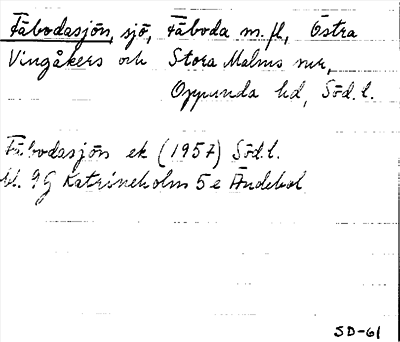 Fäbodasjön, sjö, Fäboda m.fl., Östra
Vingåkers och Stora Malms snr,
Oppunda hd, Söd.l.
Fäbodasjön ek (1957) Söd.l.
bl. 9G Katrineholm 5e Ändebol
SD-61